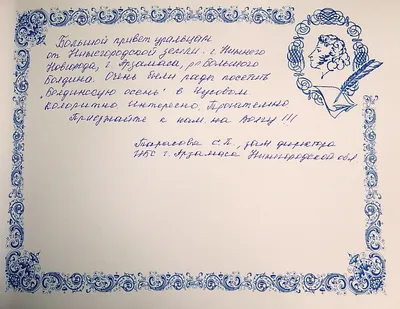 Большой привет уральцам
от Нижегородской земли - г. Нижнего
Новгорода, г. Арзамаса, р. Большого
Болдина. Очень были рады посетить
"Болдинскую осень" в Чусовом.
Колоритно. Интересно. Пронительно
Приезжайте к нам на Волгу !!!
Тарасова С.П., зам директора
г. Арзамаса Нижегородской обл